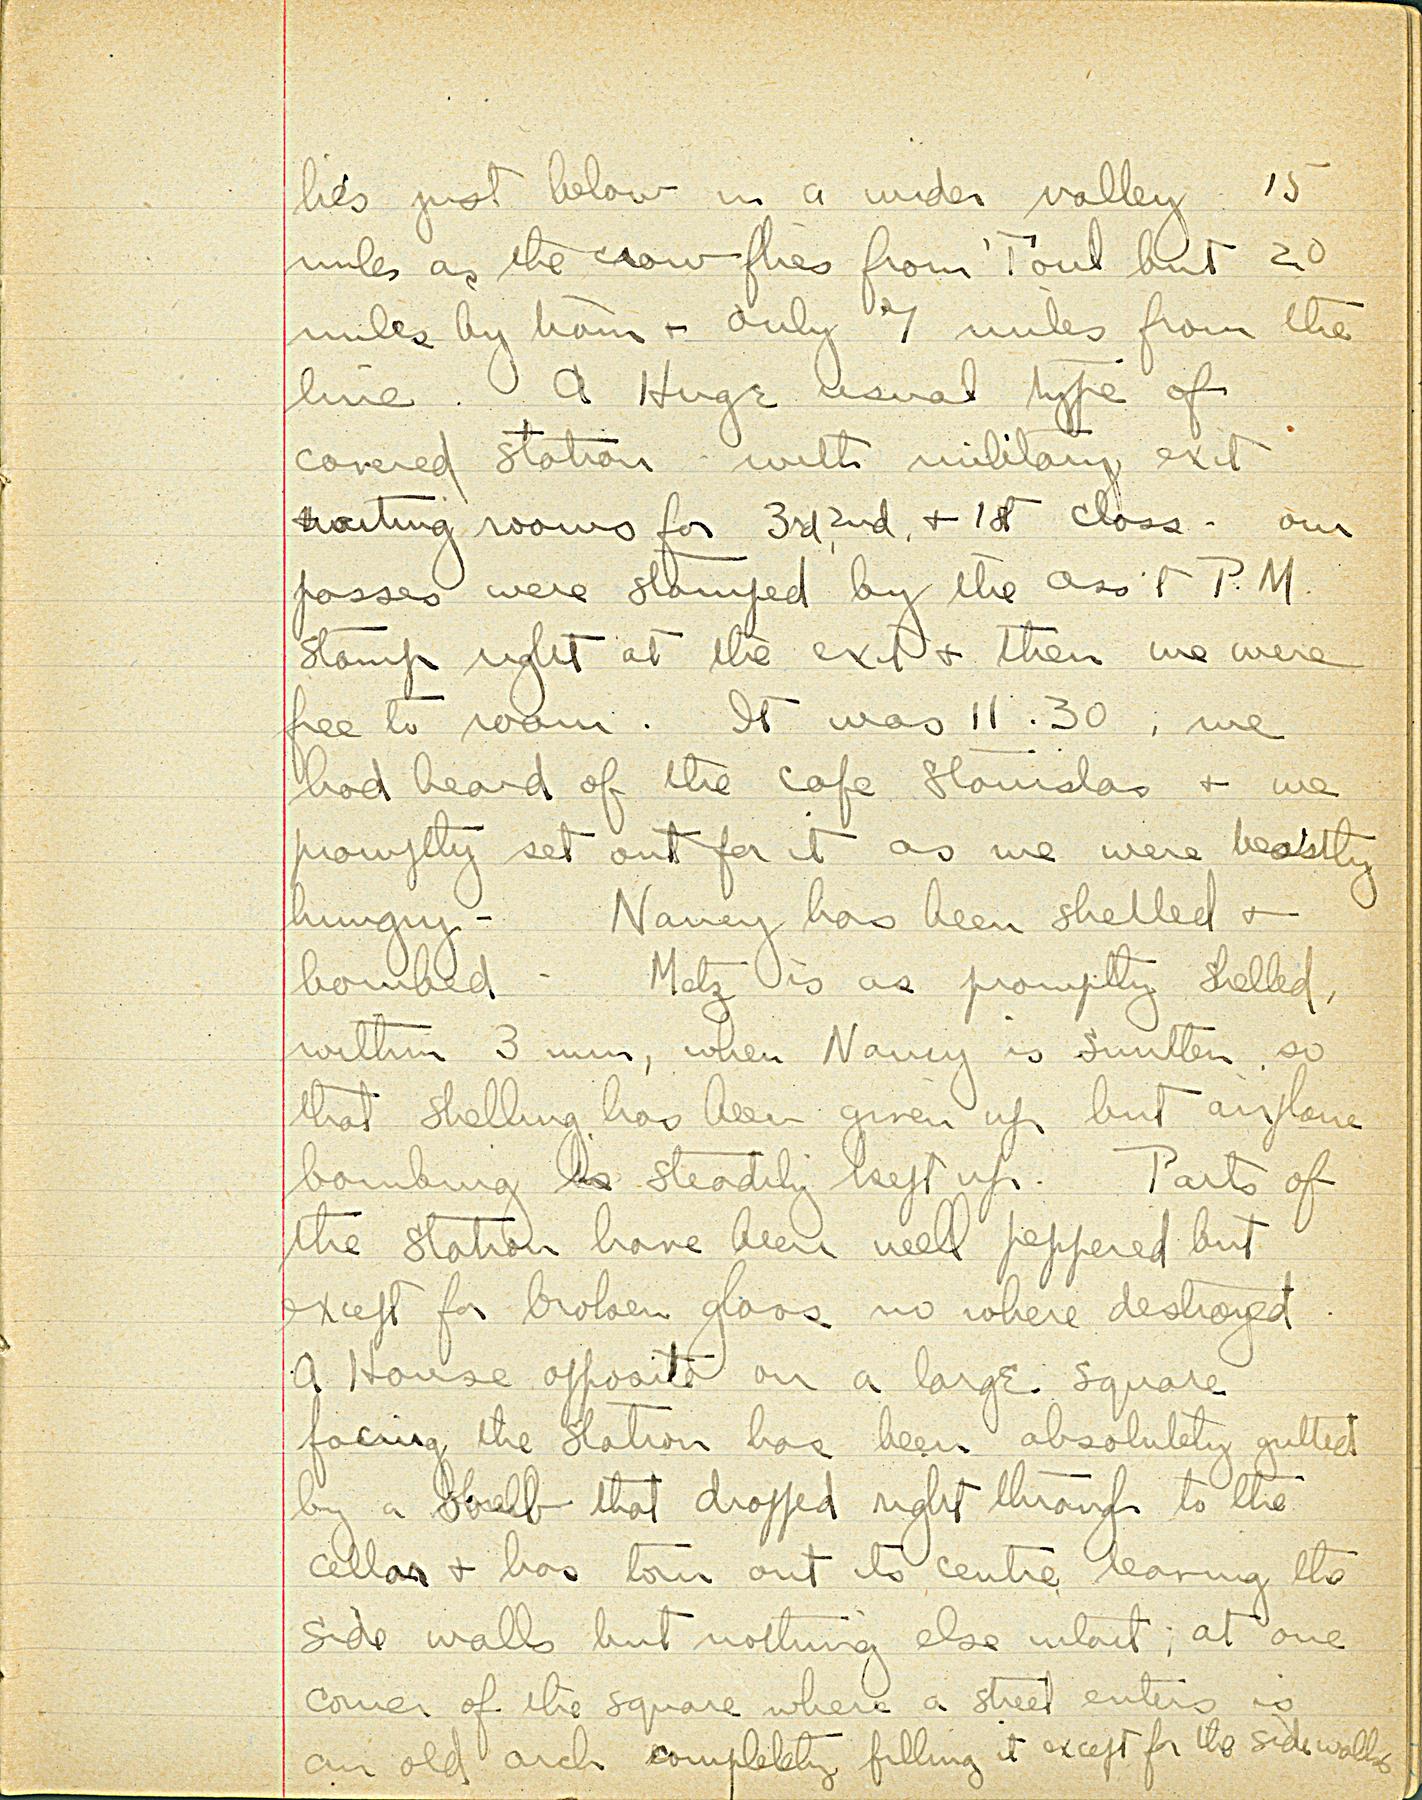 lies just below in a wider valley 15
miles as the crow flies from Toul but 20
miles by train + only 7 miles from the
line. A Huge usual type of
covered station - with military exit
waiting rooms for 3rd, 2nd, + 1st class - our
passes were stamped by the Ass't P.M.
stamp right at the exit + then we were
free to roam. It was 11.30, we
had heard of the cafe Stanislas + we
promptly set out for it as we were beastly
hungry - Nancy has been shelled +
bombed - Metz is as promptly shelled,
within 3 min, when Nancy is smitten so
that shelling has been given up but airplane
bombing is steadily kept up. Parts of
the station have been well peppered but
except for broken glass no where destroyed.
A House opposite on a large square
facing the station has been absolutely gutted
by a shell that dropped right through to the
cellar + has torn out its centre, leaving the
side walls but nothing else intact; at one
corner of the square where a street enters is
an old arch completely filling it except for the sidewalks